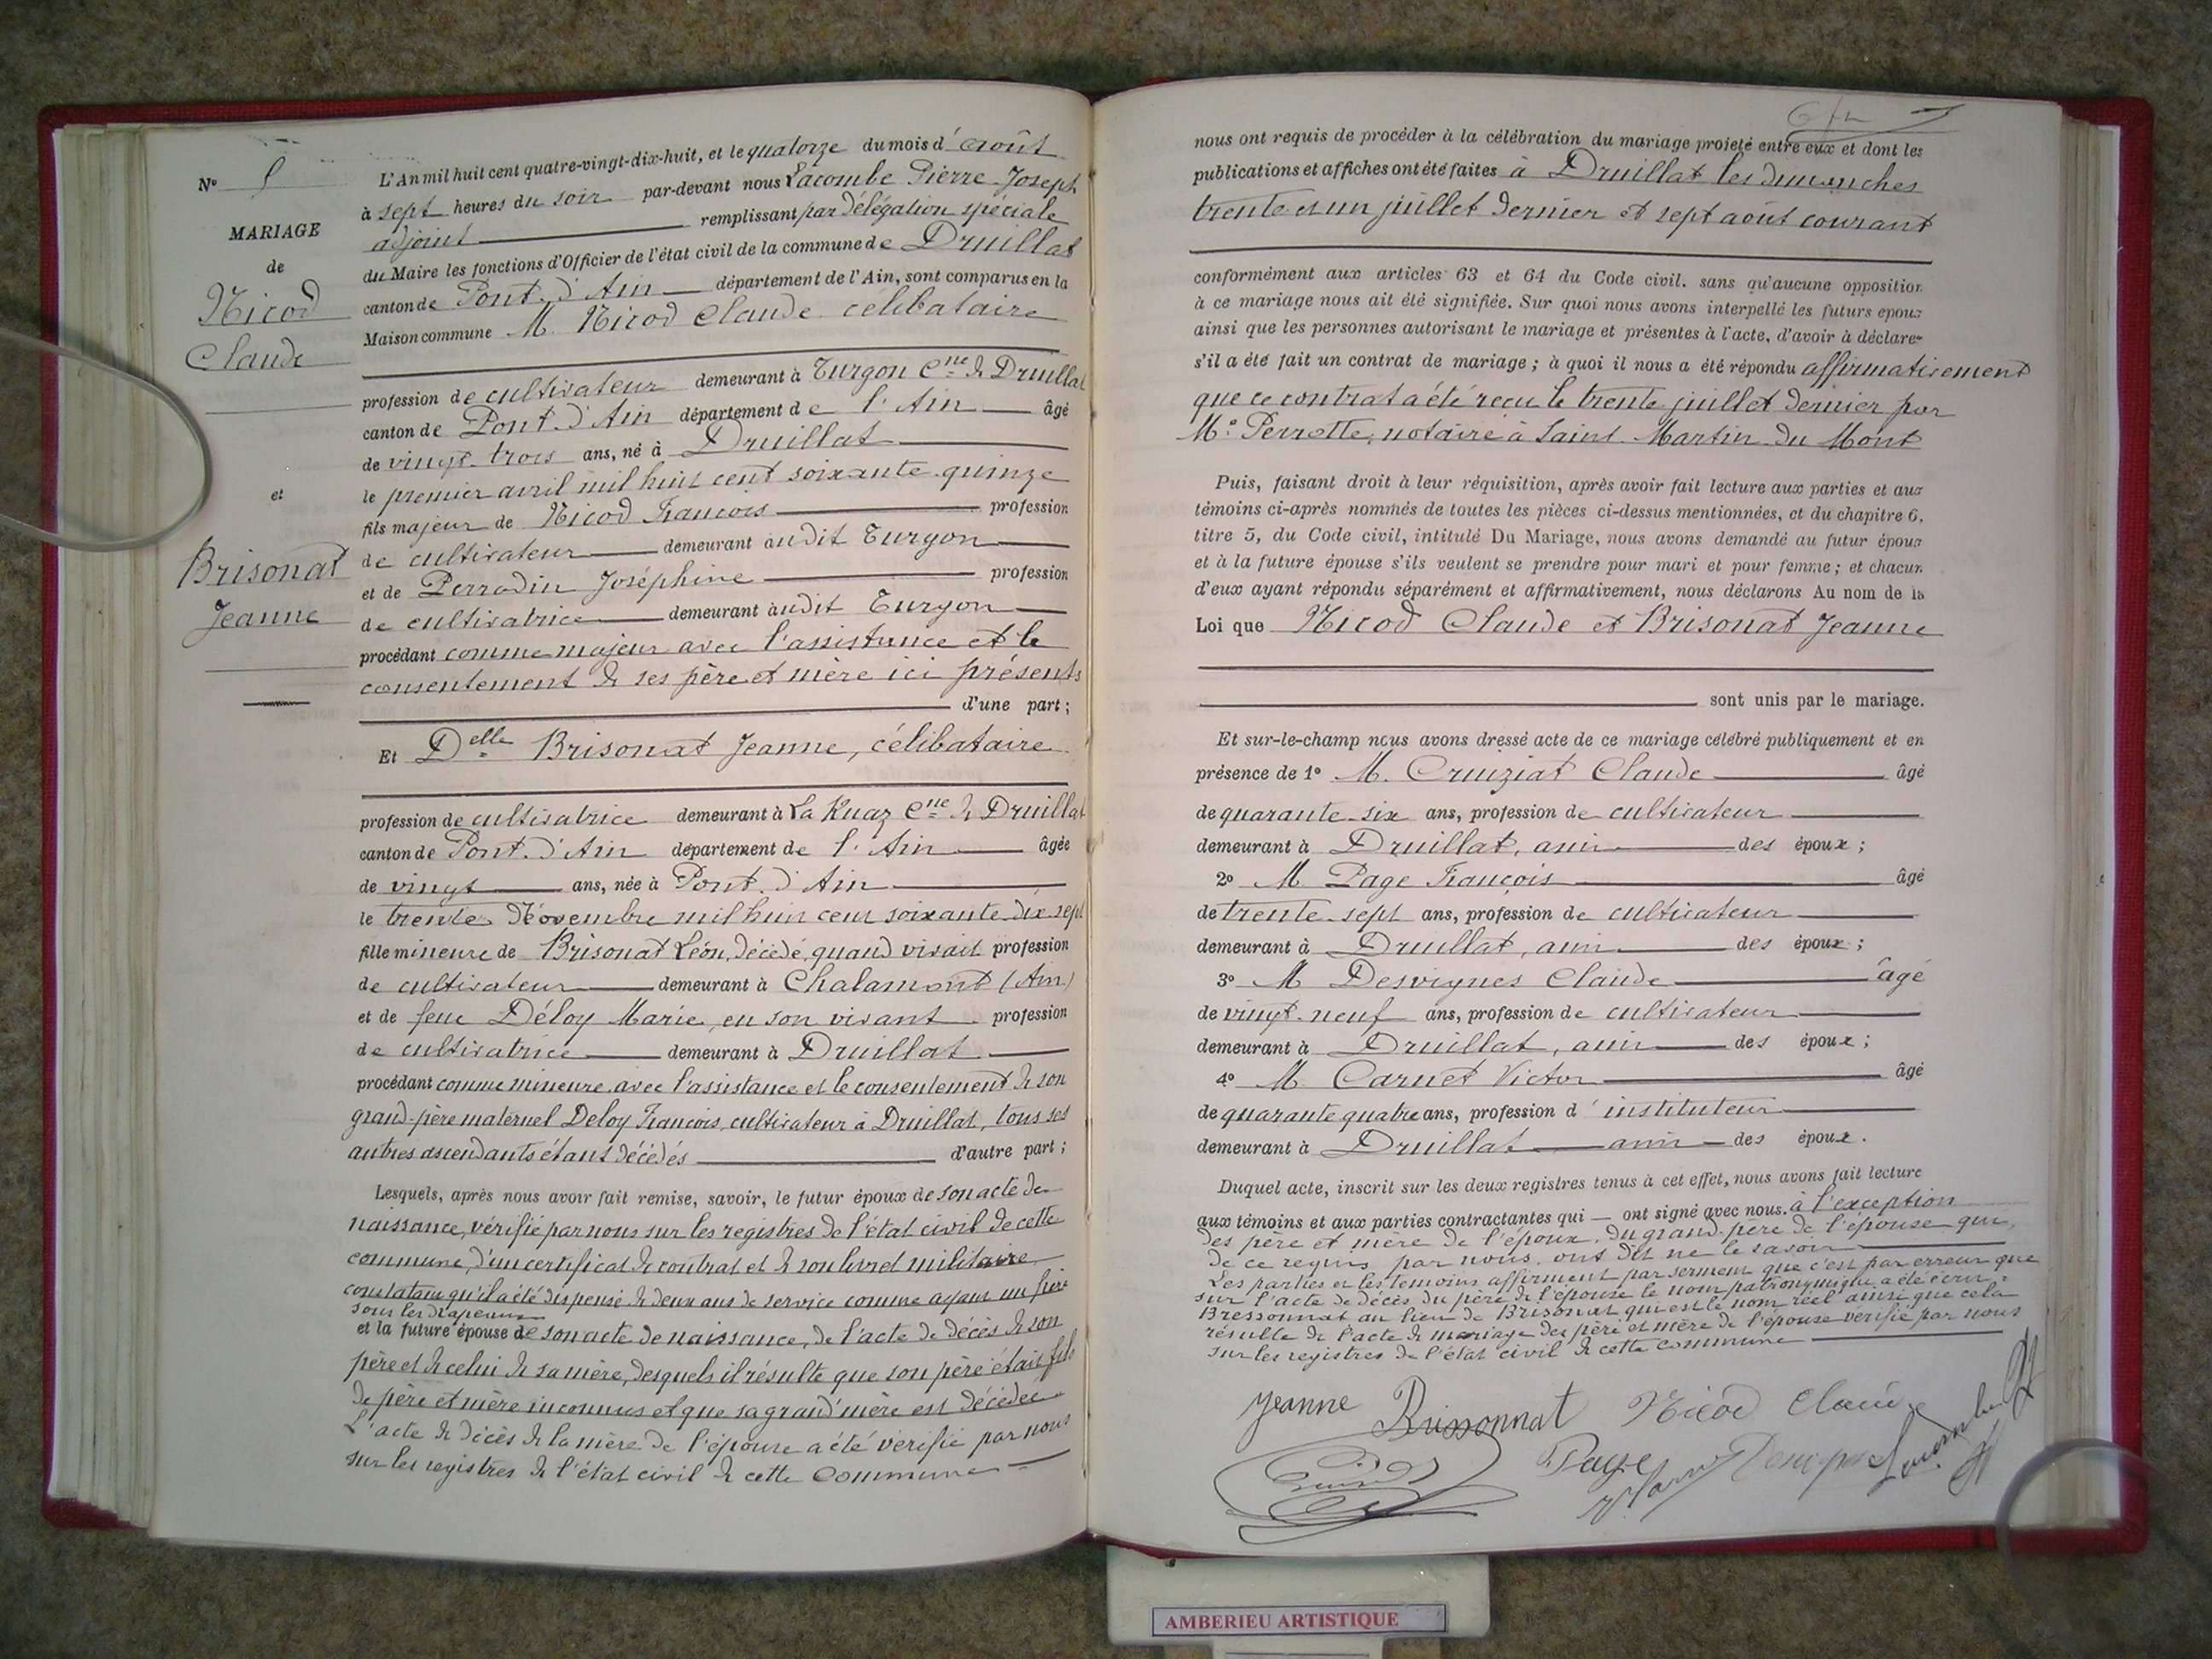 N° 8
MARIAGE
de
Nicod
Claude
et
Brisonat
Jeanne
L'An mil huit cent quatre-vingt-dix-huit, et le quatorze du mois d'août
à sept heures du soir par-devant nous Lacombe Pierre Joseph
adjoint remplissant par délégation spéciale
du Maire les fonctions d'Officier de l'état civil de la commune de Druillat
canton de Pont d'Ain département de l'Ain, sont comparus en la
Maison commune M. Nicod Claude célibataire
profession de cultivateur demeurant à Turgon Cne de Druillat
canton de Pont d'Ain département de l'Ain âgé
de vingt-trois ans, né à Druillat
le premier avril mil huit cent soixante quinze
fils majeur de Nicod François profession
de cultivateur demeurant audit Turgon
et de Perrodin Joséphine profession
de cultivatrice demeurant audit Turgon
procédant comme majeur avec l'assistance et le
consentement de ses père et mère ici présents
d'une part;
Et Delle Brisonat Jeanne, célibataire
profession de cultivatrice demeurant à La Ruaz Cne de Druillat
canton de Pont d'Ain département de l'Ain âgée
de vingt ans, née à Pont d'Ain
le trente Novembre mil huit cent soixante dix sept
fille mineure de Brisonat Léon, décédé, quand vivait profession
de cultivateur demeurant à Chalamont (Ain)
et de feue Déloy Marie, en son vivant profession
de cultivatrice demeurant à Druillat
procédant comme mineure avec l'assistance et le consentement de son
grand-père maternel Deloy François, cultivateur à Druillat, tous ses
autres ascendants étant décédés d'autre part;
Lesquels, après nous avoir fait remise, savoir, le futur époux de son acte de
naissance, vérifié par nous sur les registres de l'état civil de cette
commune, d'un certificat de contrat et de son livret militaire
constatant qu'il a été dispensé de deux ans de service comme ayant un frère
sous les drapeaux
et la future épouse de son acte de naissance, de l'acte de décès de son
père et de celui de sa mère, desquels il résulte que son père était fils
de père et mère inconnus et que sa grand'mère est décédée
L'acte de décès de la mère de l'épouse a été vérifié par nous
sur les registres de l'état civil de cette commune
nous ont requis de procéder à la célébration du mariage projeté entre eux et dont les
publications et affiches ont été faites à Druillat les dimanches
trente et un juillet dernier et sept août courant
conformément aux articles 63 et 64 du Code civil. sans qu'aucune opposition
à ce mariage nous ait été signifiée. Sur quoi nous avons interpellé les futurs epoux
ainsi que les personnes autorisant le mariage et présentes à l'acte, d'avoir à déclarer
s'il a été fait un contrat de mariage; à quoi il nous a été répondu affirmativement
que ce contrat a été reçu le trente juillet dernier par
Me Perrotte, notaire à Saint Martin du Mont
Puis, faisant droit à leur réquisition, après avoir fait lecture aux parties et aux
témoins ci-après nommés de toutes les pièces ci-dessus mentionnées, et du chapitre 6,
titre 5, du Code civil, intitulé Du Mariage, nous avons demandé au futur époux
et à la future épouse s'ils veulent se prendre pour mari et pour femme; et chacun
d'eux ayant répondu séparément et affirmativement, nous déclarons Au nom de la
Loi que Nicod Claude et Brisonat Jeanne
sont unis par le mariage.
Et sur-le-champ nous avons dressé acte de ce mariage célébré publiquement et en
présence de 1° M. Cruiziat Claude âgé
de quarante-six ans, profession de cultivateur
demeurant à Druillat, ami des époux;
2° M Page François âgé
de trente-sept ans, profession de cultivateur
demeurant à Druillat, ami des époux;
3° M Desvignes Claude âgé
de vingt-neuf ans, profession de cultivateur
demeurant à Druillat, ami des époux;
4° M. Carnet Victor âgé
de quarante quatre ans, profession d'instituteur
demeurant à Druillat ami des époux.
Duquel acte, inscrit sur les deux registres tenus à cet effet, nous avons fait lecture
aux témoins et aux parties contractantes qui ont signé avec nous. à l'exception
des père et mère de l'époux, du grand-père de l'épouse qui,
de ce requis par nous, ont dit ne le savoir
Les parties et les témoins affirment par serment que c'est par erreur que
sur l'acte de décès du père de l'épouse le nom patronymique a été écrit:
Bressonnat au lieu de Brisonat qui est le nom réel ainsi que cela
résulte de l'acte de mariage des père et mère de l'épouse vérifié par nous
sur les registres de l'état civil de cette commune
Jeanne Brissonnat Nicod Claude
Page
AMBERIEU ARTISTIQUE